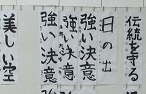 伝統を守る
日の出
強い決意
強い決意
強い決意
美しい空